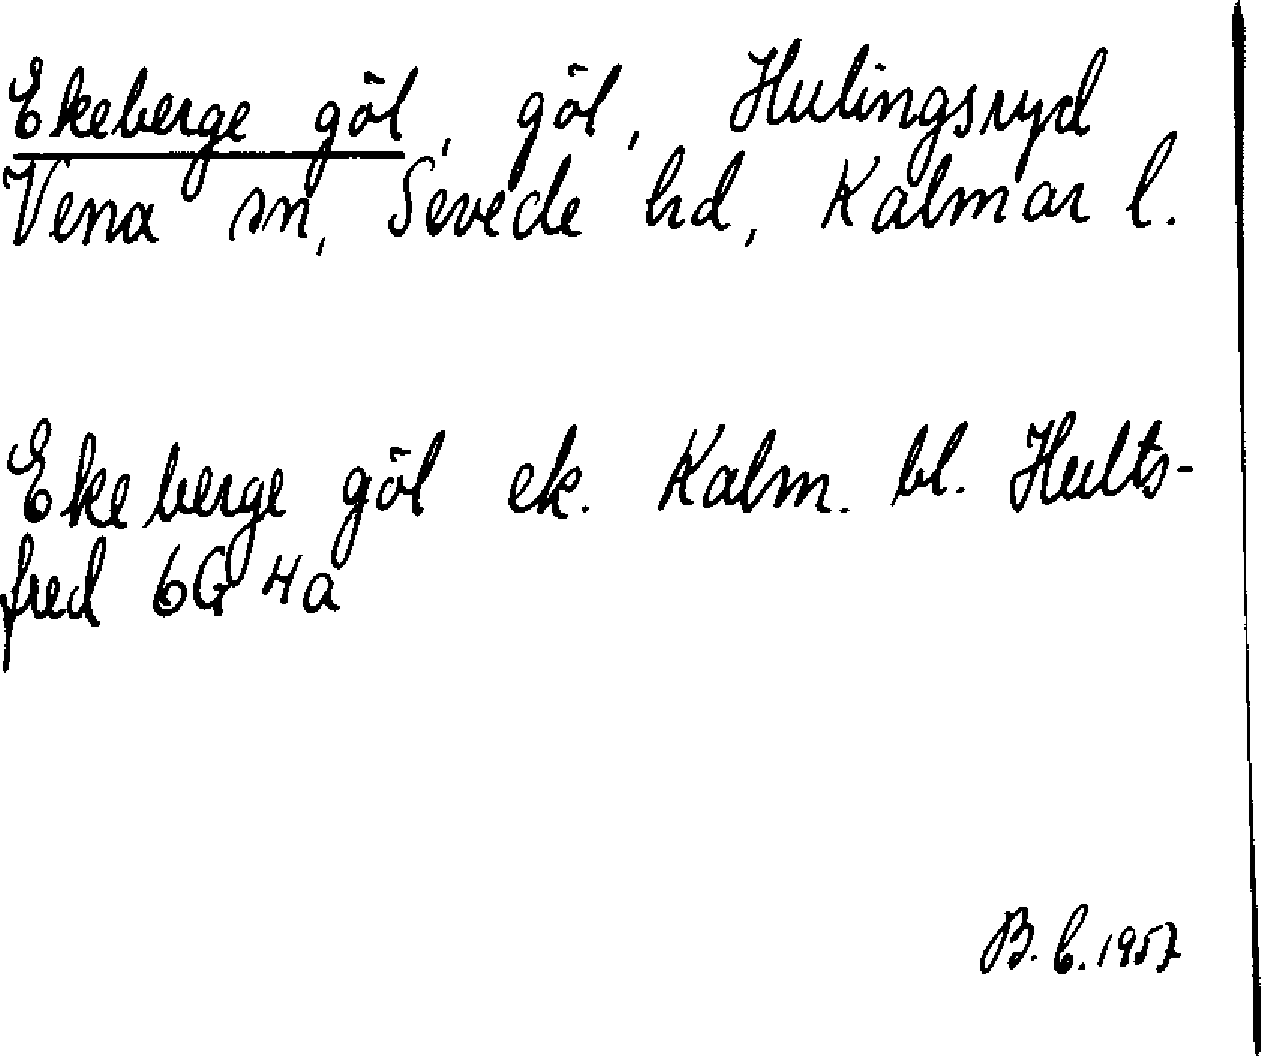 Ekeberge göl, göl, Hulingsryd
Vena sn, Sevede hd, Kalmar l.
Ekeberge göl ek. Kalm. bl. Hults-
fred 6G 4a
B. b. 1957